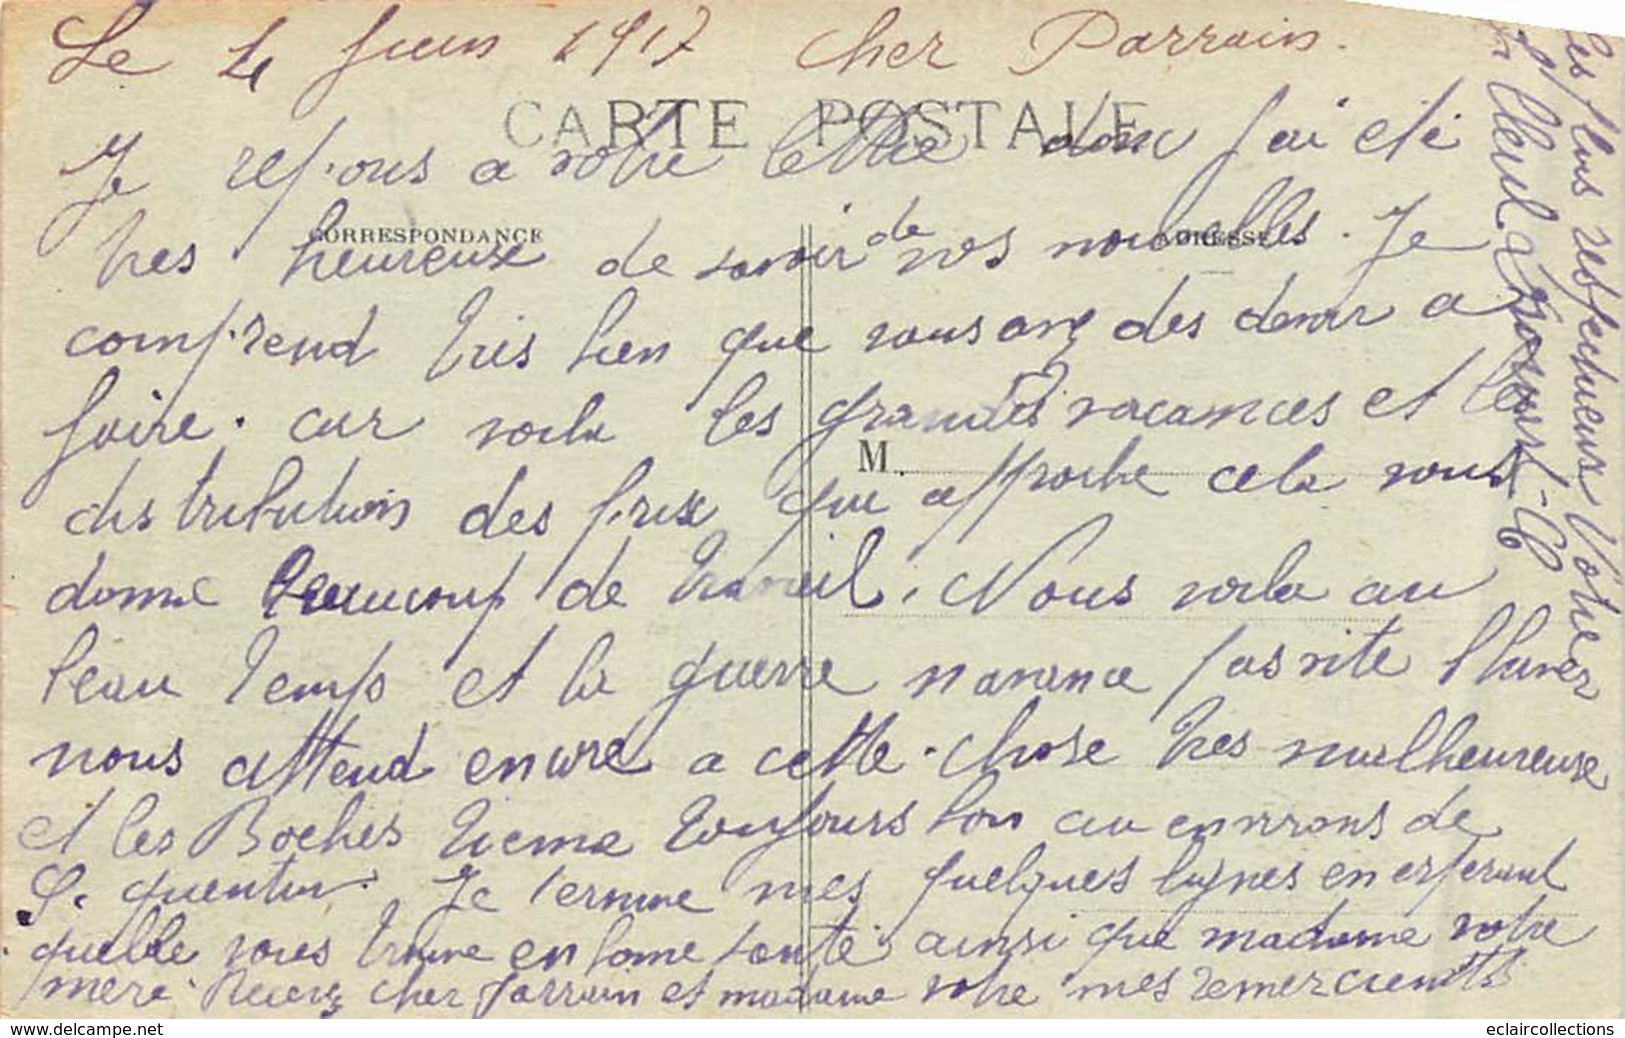 Le 4 Juin 1917 Cher Parrain.
CARTE POSTALE
Je repons a votre lettre donc j'ai eté
CORRESPONDANCE
ADRESSE
tres heureuse de savoir de vos nouvelles. Je
comprend tres bien que vous avez des devoir a
faire. car voila les grandes vacances et les
M.
distributions des prix que approche cela vous
donne beaucoup de travail. Nous voila au
beau temps et la guerre navance pas vite l'hiver
nous attend encore a cette chose tres malheureuse
et les Boches tienne toujours bon au environs de
St quentin. Je termine mes quelques lignes en esperant
quelle vous trouve en bonne santé ainsi que madame votre
mere. Recevez cher parrain et madame votre mes remerciements
les plus respectueux Votre
filleul